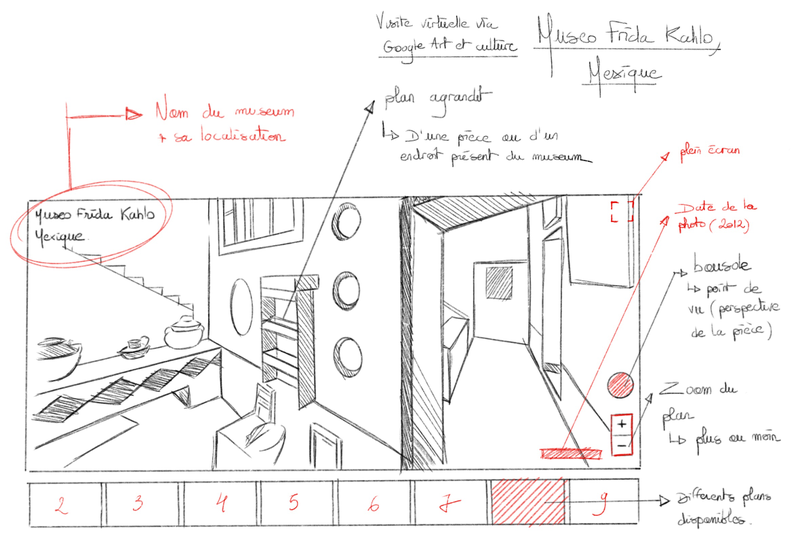 Visite virtuelle via
Google Art et culture
Museo Frida Kahlo,
Mexique
Nom du museum
+ sa localisation
plan agrandit
↳ D'une pièce ou d'un
endroit présent du museum
plein écran
Date de la
photo (2012)
Museo Frida Kahlo
Mexique.
bousole
↳ point de
vu (perspective
de la pièce)
Zoom du
plan
↳ plus ou moin
+
-
2 3 4 5 6 7 9
Differents plans
disponibles.